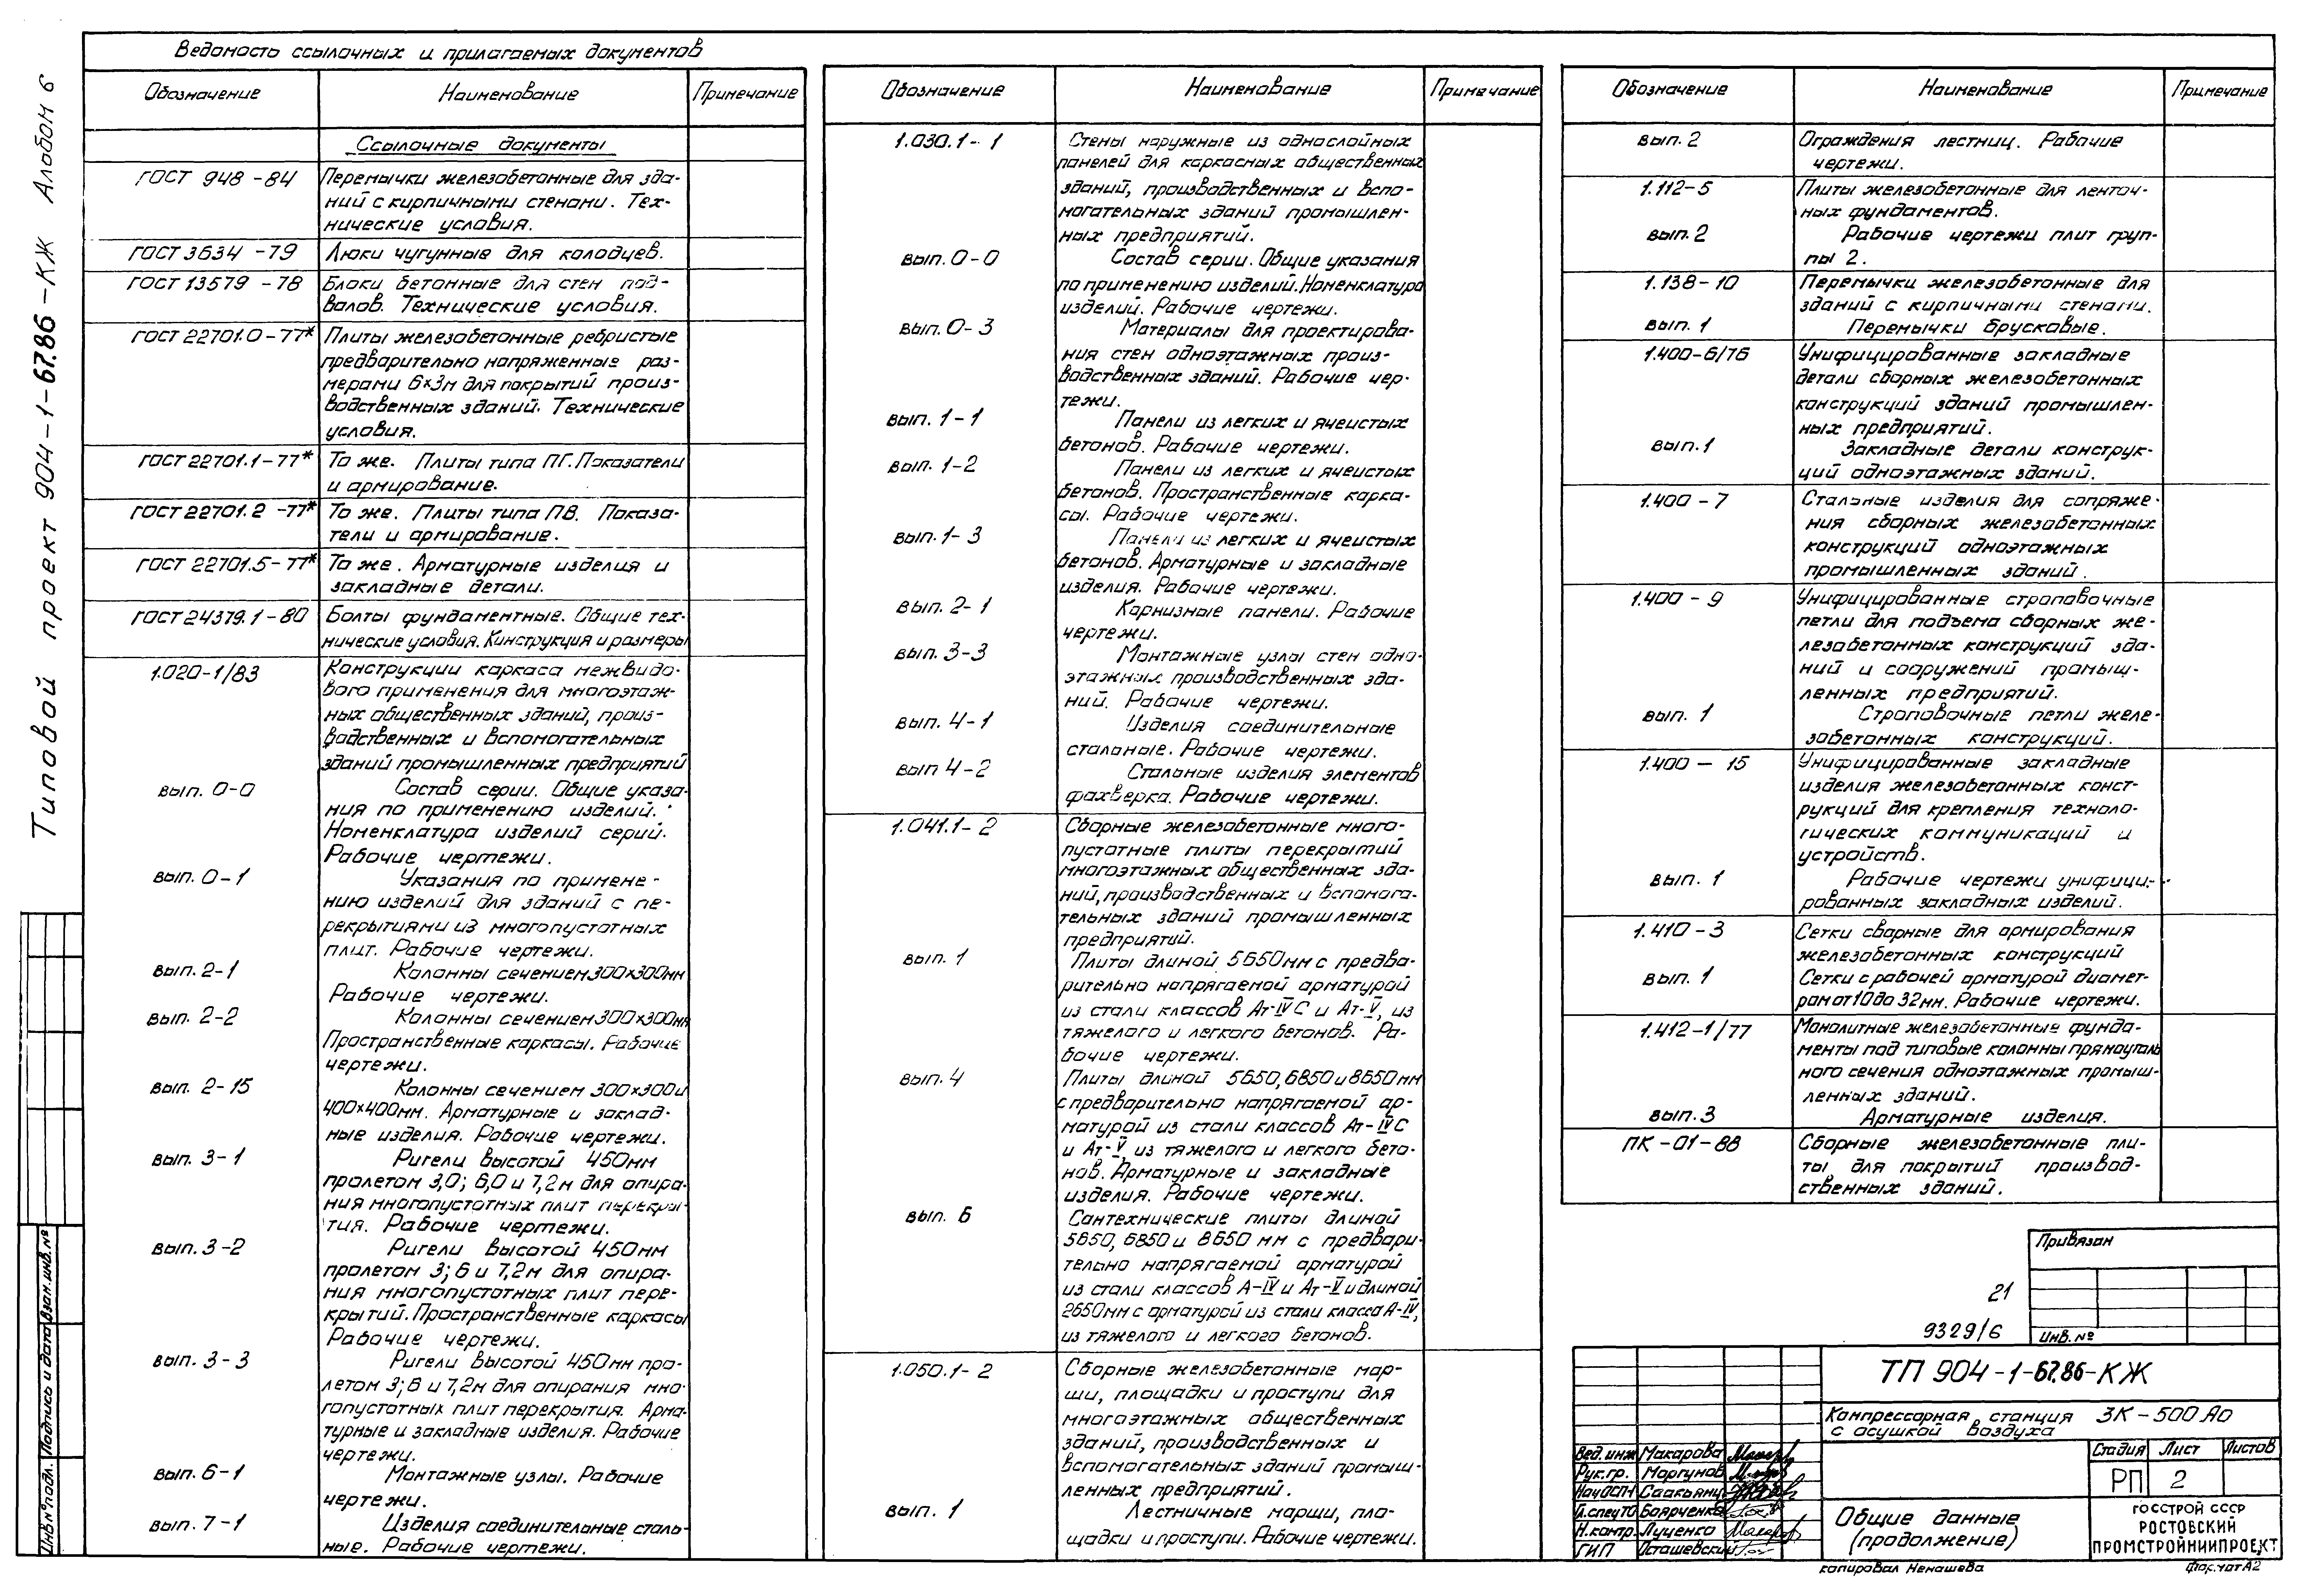 Типовой проект 904-1-67.86-КЖ Альбом 6
Ведомость ссылочных и прилагаемых документов
Обозначение Наименование Примечание
Ссылочные документы
ГОСТ 948-84 Перемычки железобетонные для зда-
ний с кирпичными стенами. Тех-
нические условия.
ГОСТ 3634-79 Люки чугунные для колодцев.
ГОСТ 13579-78 Блоки бетонные для стен под-
валов. Технические условия.
ГОСТ 22701.0-77* Плиты железобетонные ребристые
предварительно напряженные раз-
мерами 6×3м для покрытий произ-
водственных зданий. Технические
условия.
ГОСТ 22701.1-77* То же. Плиты типа ПГ. Показатели
и армирование.
ГОСТ 22701.2-77* То же. Плиты типа ПВ. Показа-
тели и армирование.
ГОСТ 22701.5-77* То же. Арматурные изделия и
закладные детали.
ГОСТ 24379.1-80 Болты фундаментные. Общие тех-
нические условия. Конструкция и размеры
1.020-1/83 Конструкции каркаса межвидо-
вого применения для многоэтаж-
ных общественных зданий, произ-
водственных и вспомогательных
зданий промышленных предприятий
вып. 0-0 Состав серии. Общие указа-
ния по применению изделий.
Номенклатура изделий серий.
Рабочие чертежи.
вып. 0-1 Указания по примене-
нию изделий для зданий с пе-
рекрытиями из многопустотных
плит. Рабочие чертежи.
вып. 2-1 Колонны сечением 300×300мм
Рабочие чертежи.
вып. 2-2 Колонны сечением 300×300мм
Пространственные каркасы. Рабочие
чертежи.
вып. 2-15 Колонны сечением 300×300 и
400×400мм. Арматурные и заклад-
ные изделия. Рабочие чертежи.
вып. 3-1 Ригели высотой 450мм
пролетом 3,0; 6,0 и 7,2м для опира-
ния многопустотных плит перекры-
тия. Рабочие чертежи.
вып. 3-2 Ригели высотой 450мм
пролетом 3; 6 и 7,2м для опира-
ния многопустотных плит пере-
крытий. Пространственные каркасы
Рабочие чертежи.
вып. 3-3 Ригели высотой 450мм про-
летом 3; 6 и 7,2м для опирания мно-
гопустотных плит перекрытия. Арма-
турные и закладные изделия. Рабочие
чертежи.
вып. 6-1 Монтажные узлы. Рабочие
чертежи.
вып. 7-1 Изделия соединительные сталь-
ные. Рабочие чертежи.
Обозначение Наименование Примечание
1.030.1-1 Стены наружные из однослойных
панелей для каркасных общественных
зданий, производственных и вспо-
могательных зданий промышлен-
ных предприятий.
вып. 0-0 Состав серии. Общие указания
по применению изделий. Номенклатура
изделий. Рабочие чертежи.
вып. 0-3 Материалы для проектирова-
ния стен одноэтажных произ-
водственных зданий. Рабочие чер-
тежи.
вып. 1-1 Панели из легких и ячеистых
бетонов. Рабочие чертежи.
вып. 1-2 Панели из легких и ячеистых
бетонов. Пространственные карка-
сы. Рабочие чертежи.
вып. 1-3 Панели из легких и ячеистых
бетонов. Арматурные и закладные
изделия. Рабочие чертежи.
вып. 2-1 Карнизные панели. Рабочие
чертежи.
вып. 3-3 Монтажные узлы стен одно-
этажных производственных зда-
ний. Рабочие чертежи.
вып. 4-1 Изделия соединительные
стальные. Рабочие чертежи.
вып 4-2 Стальные изделия элементов
фахверка. Рабочие чертежи.
1.041.1-2 Сборные железобетонные много-
пустотные плиты перекрытий
многоэтажных общественных зда-
ний, производственных и вспомога-
тельных зданий промышленных
предприятий.
вып. 1 Плиты длиной 5650мм с предва-
рительно напрягаемой арматурой
из стали классов Ат-IVС и Ат-V, из
тяжелого и легкого бетонов. Ра-
бочие чертежи.
вып. 4 Плиты длиной 5650, 6850 и 8650мм
с предварительно напрягаемой ар-
матурой из стали классов Ат-IVС
и Ат-V, из тяжелого и легкого бето-
нов. Арматурные и закладные
изделия. Рабочие чертежи.
вып. 6 Сантехнические плиты длиной
5650, 6850 и 8650 мм с предвари-
тельно напрягаемой арматурой
из стали классов А-IV и Ат-V и длиной
2650мм с арматурой из стали класса А-IV,
из тяжелого и легкого бетонов.
1.050.1-2 Сборные железобетонные мар-
ши, площадки и проступи для
многоэтажных общественных
зданий, производственных и
вспомогательных зданий промыш-
ленных предприятий.
вып. 1 Лестничные марши, пло-
щадки и проступи. Рабочие чертежи.
Обозначение Наименование Примечание
вып. 2 Ограждения лестниц. Рабочие
чертежи.
1.112-5 Плиты железобетонные для ленточ-
ных фундаментов.
вып. 2 Рабочие чертежи плит груп-
пы 2.
1.138-10 Перемычки железобетонные для
зданий с кирпичными стенами.
вып. 1 Перемычки брусковые.
1.400-6/76 Унифицированные закладные
детали сборных железобетонных
конструкций зданий промышлен-
ных предприятий.
вып. 1 Закладные детали конструк-
ций одноэтажных зданий.
1.400-7 Стальные изделия для сопряже-
ния сборных железобетонных
конструкций одноэтажных
промышленных зданий.
1.400-9 Унифицированные строповочные
петли для подъема сборных же-
лезобетонных конструкций зда-
ний и сооружений промыш-
ленных предприятий.
вып. 1 Строповочные петли желе-
зобетонных конструкций.
1.400-15 Унифицированные закладные
изделия железобетонных конст-
рукций для крепления техноло-
гических коммуникаций и
устройств.
вып. 1 Рабочие чертежи унифици-
рованных закладных изделий.
1.410-3 Сетки сварные для армирования
железобетонных конструкций
вып. 1 Сетки с рабочей арматурой диамет-
ром от 10 до 32мм. Рабочие чертежи.
1.412-1/77 Монолитные железобетонные фунда-
менты под типовые колонны прямоуголь
ного сечения одноэтажных промыш-
ленных зданий.
вып. 3 Арматурные изделия.
ПК-01-88 Сборные железобетонные пли-
ты для покрытий производ-
ственных зданий.
Привязан
21
9329/6
Инв. №
ТП 904-1-67.86-КЖ
Компрессорная станция 3К-500 Ао
с осушкой воздуха
Стадия Лист Листов
РП 2
Вед. инж Макарова
Рук. гр. Моргунов
Нач.ОСП-1 Саакьянц
Гл.спец ТО Боярченко
Н. контр. Луценко
ГИП Осташевский
Общие данные
(продолжение)
ГОССТРОЙ СССР
РОСТОВСКИЙ
ПРОМСТРОЙНИИПРОЕКТ
копировал Ненашева
Формат А2
Инв № подл. Подпись и дата Взам. инв. №